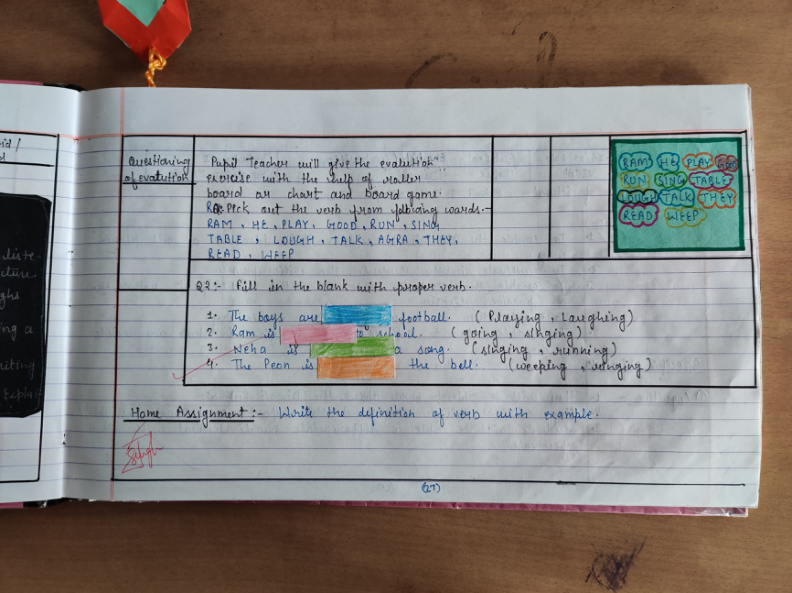 Questioning
of evalution
Pupil Teacher will give the evalution
exercise with the help of roller
board or chart and board game.
Pick out the verb from following words.-
RAM, HE, PLAY, GOOD, RUN, SING,
TABLE, LOUGH, TALK, AGRA, THEY,
READ, WEEP
RAM HE PLAY GOOD
RUN SING TABLE
LOUGH TALK THEY
READ WEEP
Q2:- Fill in the blank with proper verb.
1. The boys are football. (Playing, Laughing)
2. Ram is to school. (going, singing)
3. Neha is a song. (singing, running)
4. The Peon is the bell. (weeping, ringing)
Home Assignment:- Write the definition of verb with example.
(27)